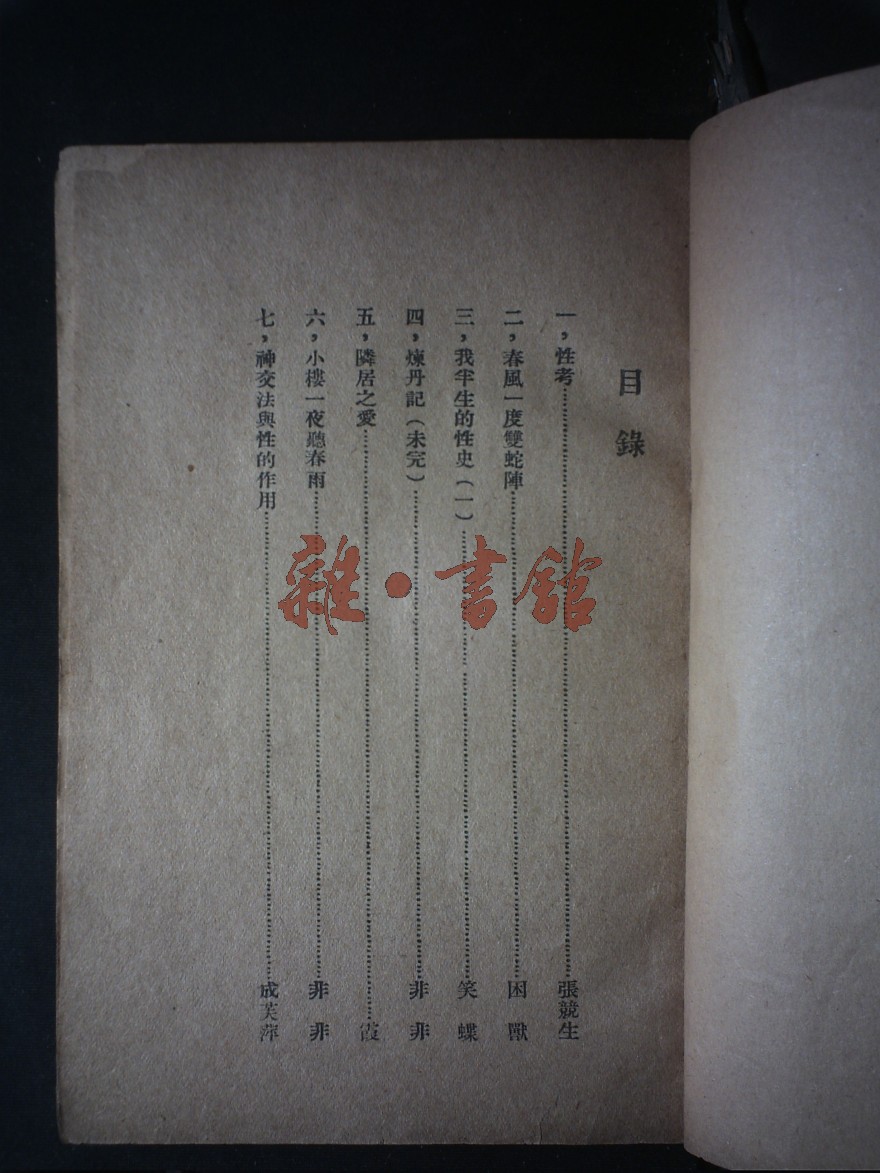 目錄
一，性考……張競生
二，春風一度雙蛇陣……困獸
三，我半生的性史(一)……笑蝶
四，煉丹記(未完)……非非
五，隣居之愛……霞
六，小樓一夜聽春雨……非非
七，神交法與性的作用……成芙萍
雜·書館